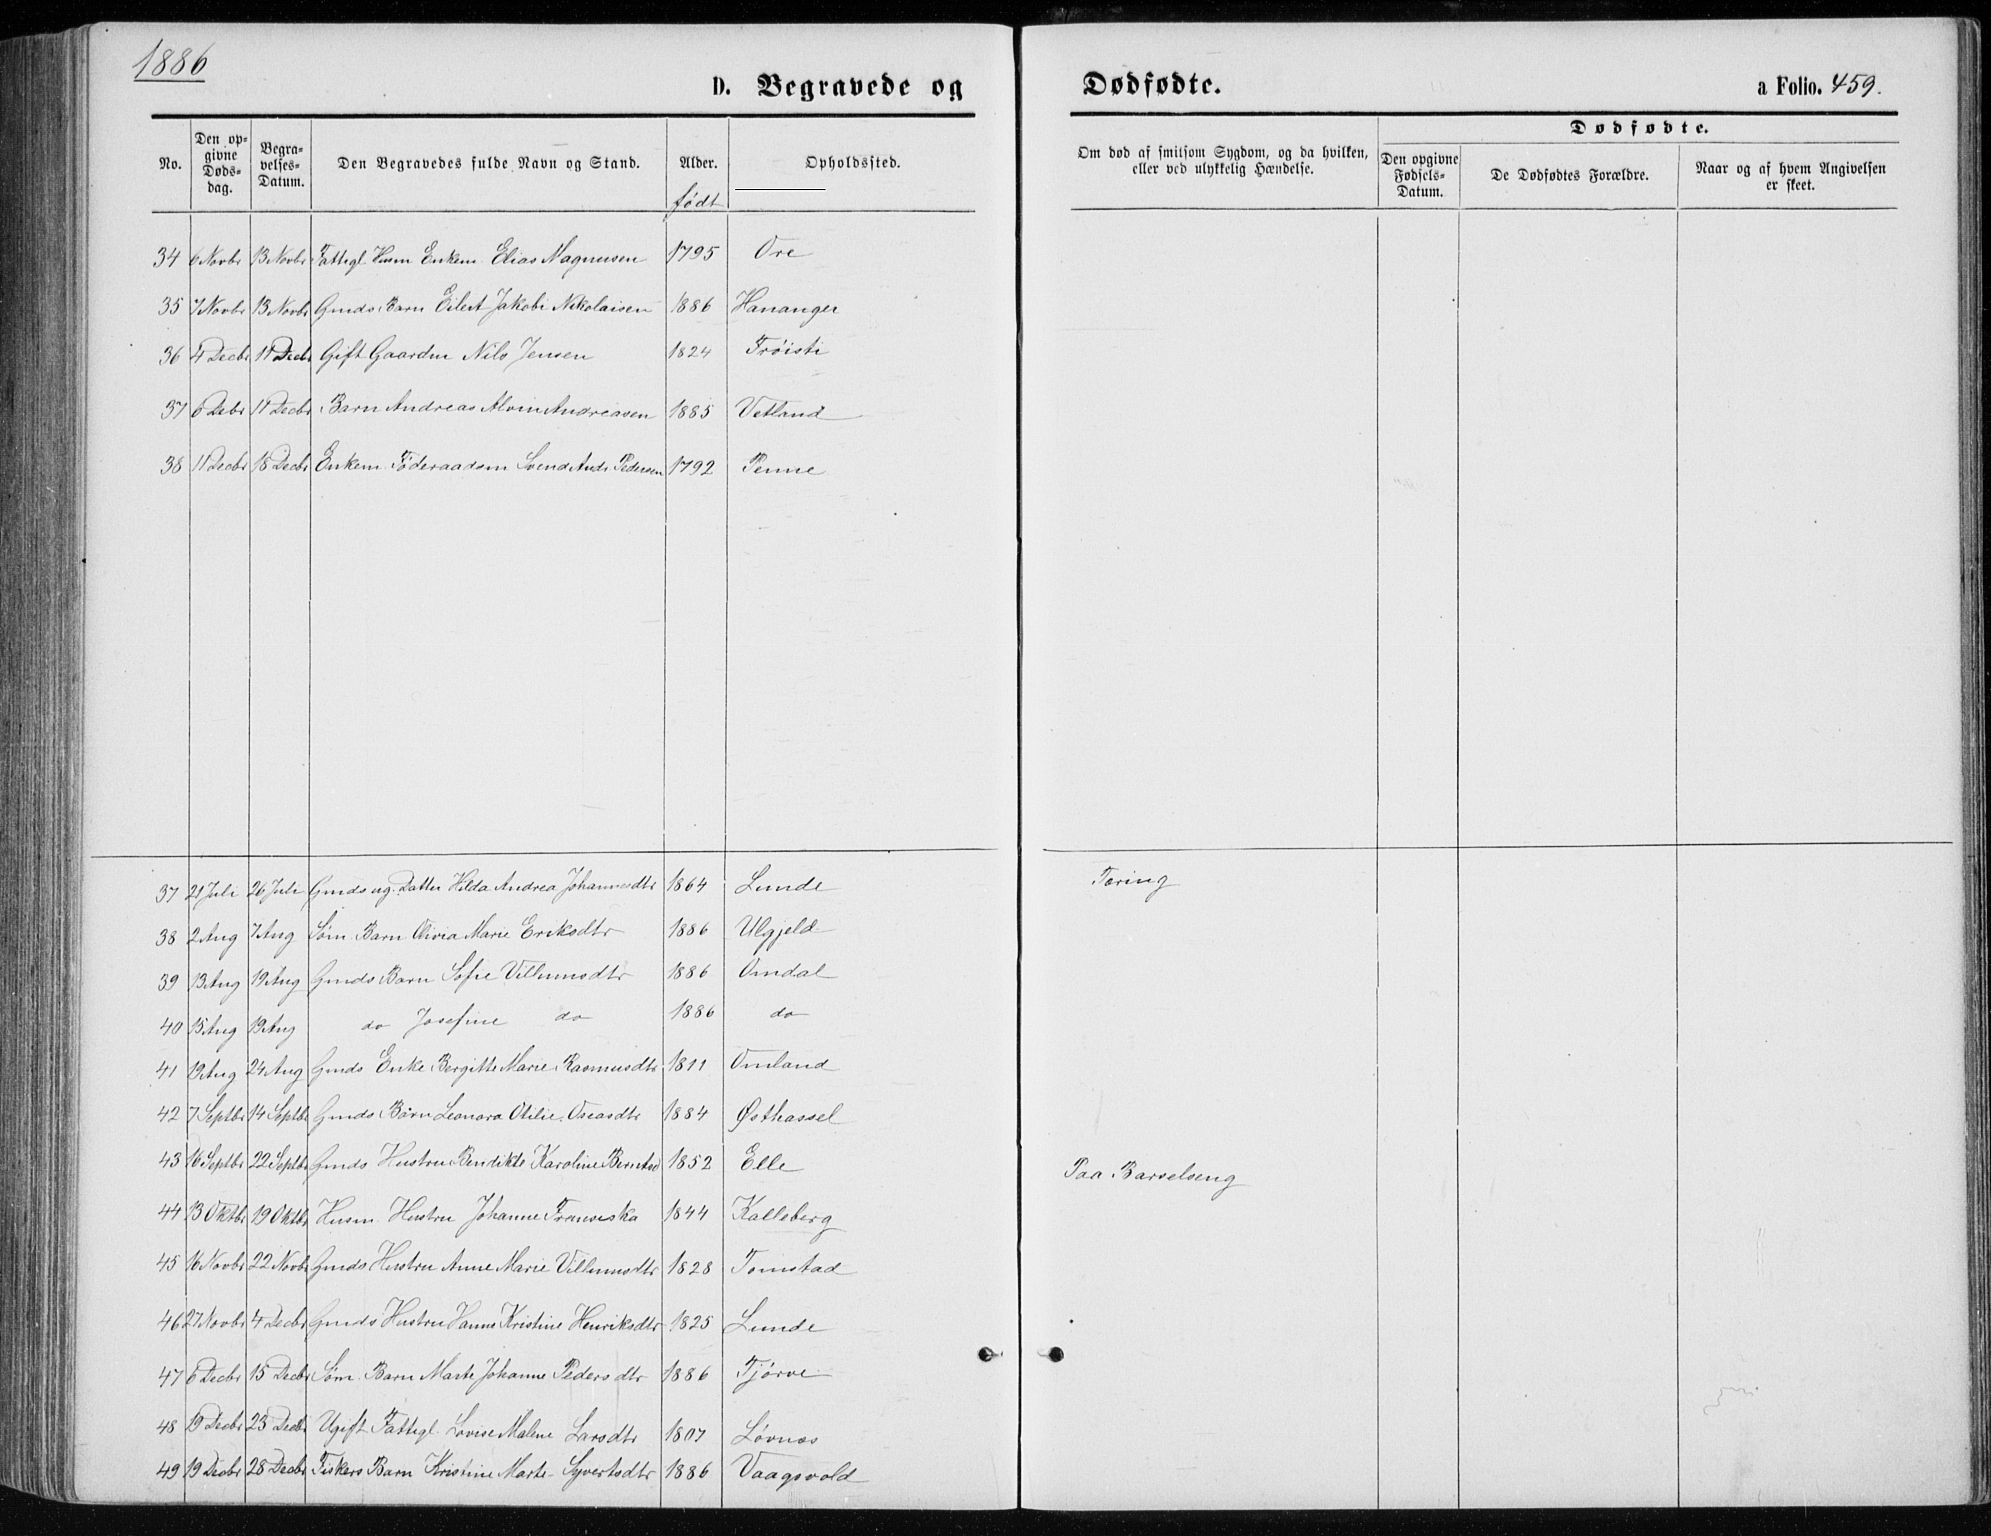 1886
D. Begravede og Dødfødte. a Folio. 459.
No. Den opgivne Dødsdag. Begravelses-Datum. Den Begravedes fulde Navn og Stand. Alder. født Opholdssted. Om død af smitsom Sygdom, og da hvilken, eller ved ulykkelig Hændelse. Dødfødte. Den opgivne Fødsels-Datum. De Dødfødtes Forældre. Naar og af hvem Angivelsen er skeet.
34 6 Novbr 13 Novbr Fattigl Husm Enkem. Elias Magnusen 1795 Ore
35 7 Novbr 13 Novbr Gmds Barn Eilert Jakobi Nikolaisen 1886 Hananger
36 4 Decbr 11 Decbr Gift Gaardm Nils Jensen 1824 Trøisti
37 6 Debr 11 Decbr Barn Andreas Alvin Andreasen 1885 Vetland
38 11 Decbr 18 Decbr Enkem Føderaadsm Svend Andr Pedersen 1792 Penne
37 21 Juli 26 Juli Gmds ug. Datter Hilda Andrea Johannesdtr 1864 Lunde Tæring
38 2 Aug 7 Aug Søm. Barn Olivia Marie Eriksdtr 1886 Ulgjeld
39 13 Aug 19 Aug Gmds Barn Sofie Villumsdtr 1886 Omdal
40 15 Aug 19 Aug do Josefine do 1886 do
41 19 Aug 24 Aug Gmds Enke Bergitte Marie Rasmusdtr 1811 Omland
42 7 Septbr 14 Septbr Gmds Barn Leonora Otilie Oseasdtr 1884 Østhassel
43 16 Septbr 22 Septbr Gmds Hustru Bendikte Karoline Berntsd 1852 Elle Paa Barselseng
44 13 Oktbr 19 Oktbr Husm. Hustru Johanne Fransiska 1844 Kalleberg
45 16 Novbr 22 Novbr Gmds Hustru Anne Marie Villumsdtr 1828 Tomstad
46 27 Novbr 4 Decbr Gmds Hustru Hanne Kristine Henriksdtr 1825 Lunde
47 6 Decbr 15 Decbr Søm. Barn Marte Johanne Pedersdtr 1886 Tjørve
48 19 Decbr 23 Decbr Ugift Fattigl. Lovise Malene Larsdtr 1807 Løvnes
49 19 Decbr 28 Decbr Fiskers Barn Kristine Marte Syvertsdtr 1886 Vaagsvold